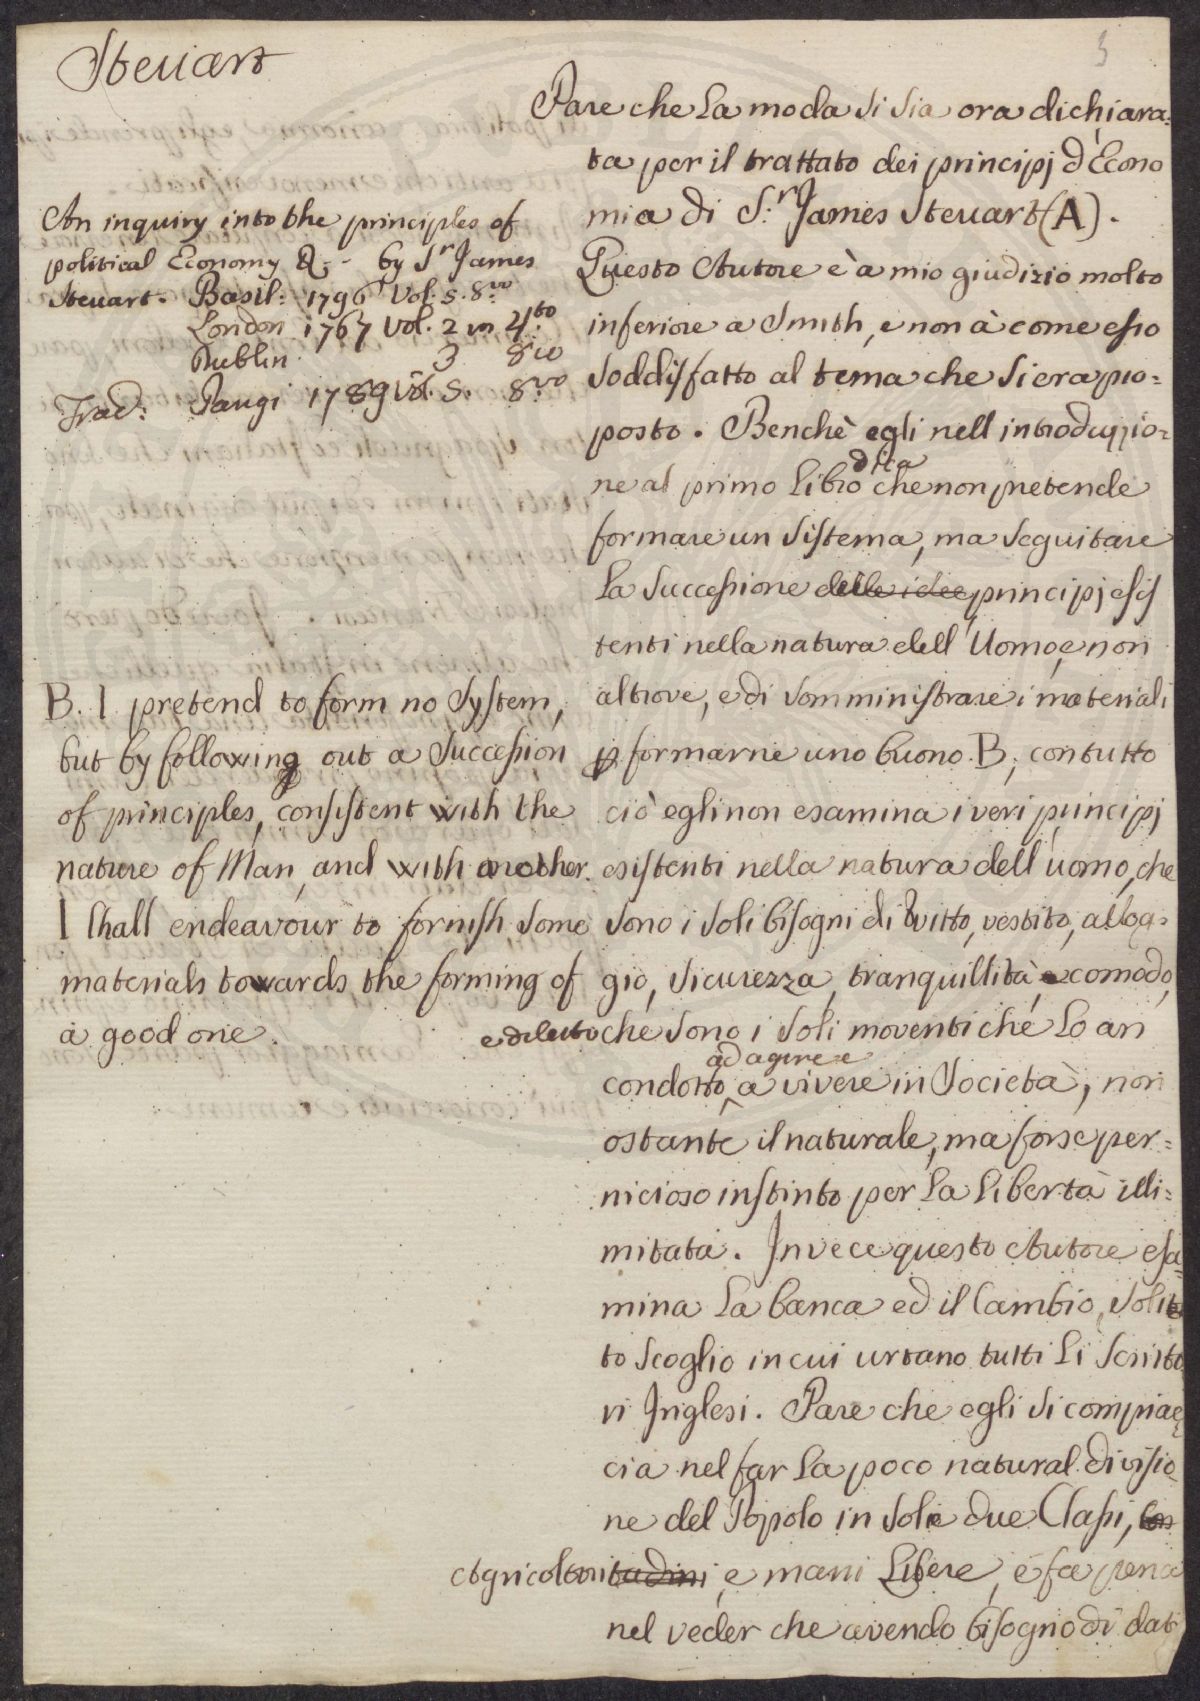 Steuart
3
An inquiry into the principles of
political Economy &. - by Sr James
Steuart. Basil: 1796 Vol. 5. 8.vo
London 1767 Vol. 2 in 4.to
Dublin 3 8vo
Trad: Parigi 1789 Vol. 5. 8.vo
B. I pretend to form no System,
but by following out a Succession
of principles, consistent with the
nature of Man, and with another.
I shall endeavour to fornish some
materials towards the forming of
a good one.
Pare che la moda si sia ora dichiara=
ta per il trattato dei principj d'Econo
mia di S.r James Steuart (A).
Questo Autore è a mio giudizio molto
inferiore a Smith, e non à come esso
soddisfatto al tema che si era pro=
posto. Benchè egli nell introduzio=
ne al primo Libro dica che non pretende
formare un sistema, ma seguitare
la successione delle idee principj esis
tenti nella natura dell'Uomo, e non
altrove, e di somministrare i materiali
p formarne uno buono. B; contutto
ciò egli non esamina i veri principj
esistenti nella natura dell'uomo, che
sono i soli bisogni di vitto, vestito, allog=
gio, sicurezza, tranquillità, e comodo,
e diletto che sono i soli moventi che lo an
condotto ad agire e a vivere in Società, non
ostante il naturale, ma forse per=
nicioso instinto per la libertà illi=
mitata. Invece questo Autore esa=
mina la banca ed il Cambio, soli
to scoglio in cui urtano tutti li scritto
ri Inglesi. Pare che egli si compiac
cia nel far la poco natural divisio
ne del Popolo in sole due Classi, Con
Agricoltori tadini, e mani Libere, e fa pena
nel veder che avendo bisogno di dati